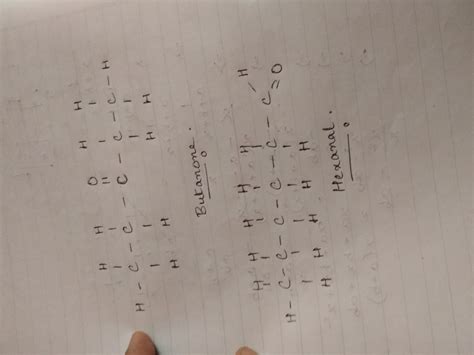 H H O H H
H - C - C - C - C - C - H
H H H H
Butanone.
H H H H H H
H - C - C - C - C - C - C = O
H H H H H
Hexanal.